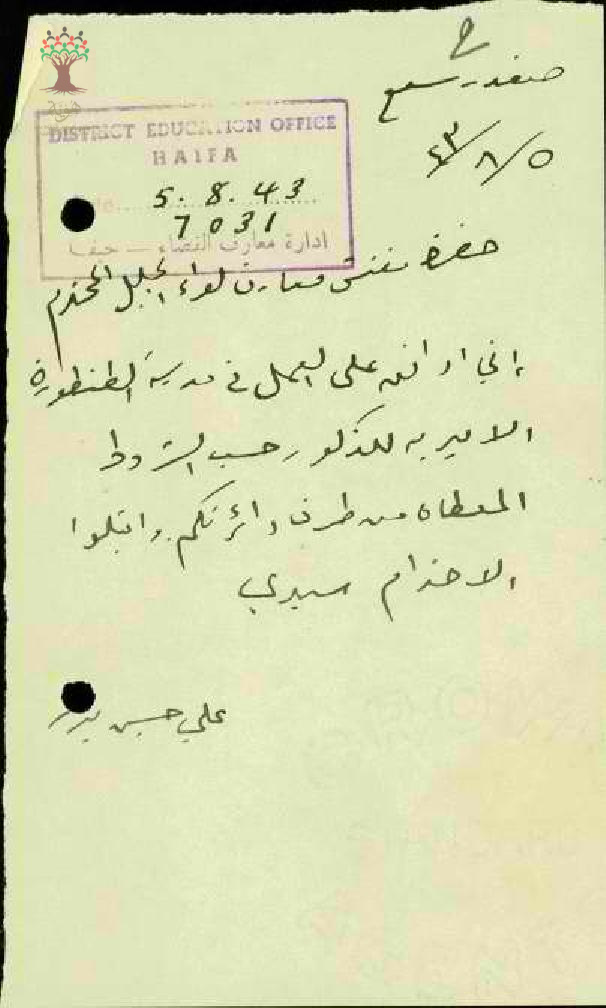 هوية
٤٣/٨/٥
DISTRICT EDUCATION OFFICE
HAIFA
5. 8. 43
7031
ادارة معارف القضاء — حيفا
حضرة مفتش معارف لواء الجليل المحترم
إني اوافق على العمل في مدرسة الطنطورة
الاميرية للذكور حسب الشروط
المعطاه من طرف دائرتكم. واقبلوا
الاحترام سيدي
علي حسين